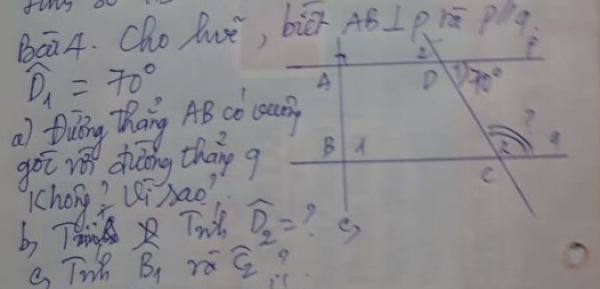 Bài 4. Cho hvẽ, biết AB⊥p và p//q.
D̂₁ = 70°
a) Đường thẳng AB có vuông
góc với đường thẳng q
không? Vì sao?
b, Tính D̂₂ = ?
c, Tính B̂₁ và Ĉ₂ ?
2 p
A D 1 70°
?
B 1 2 q
C